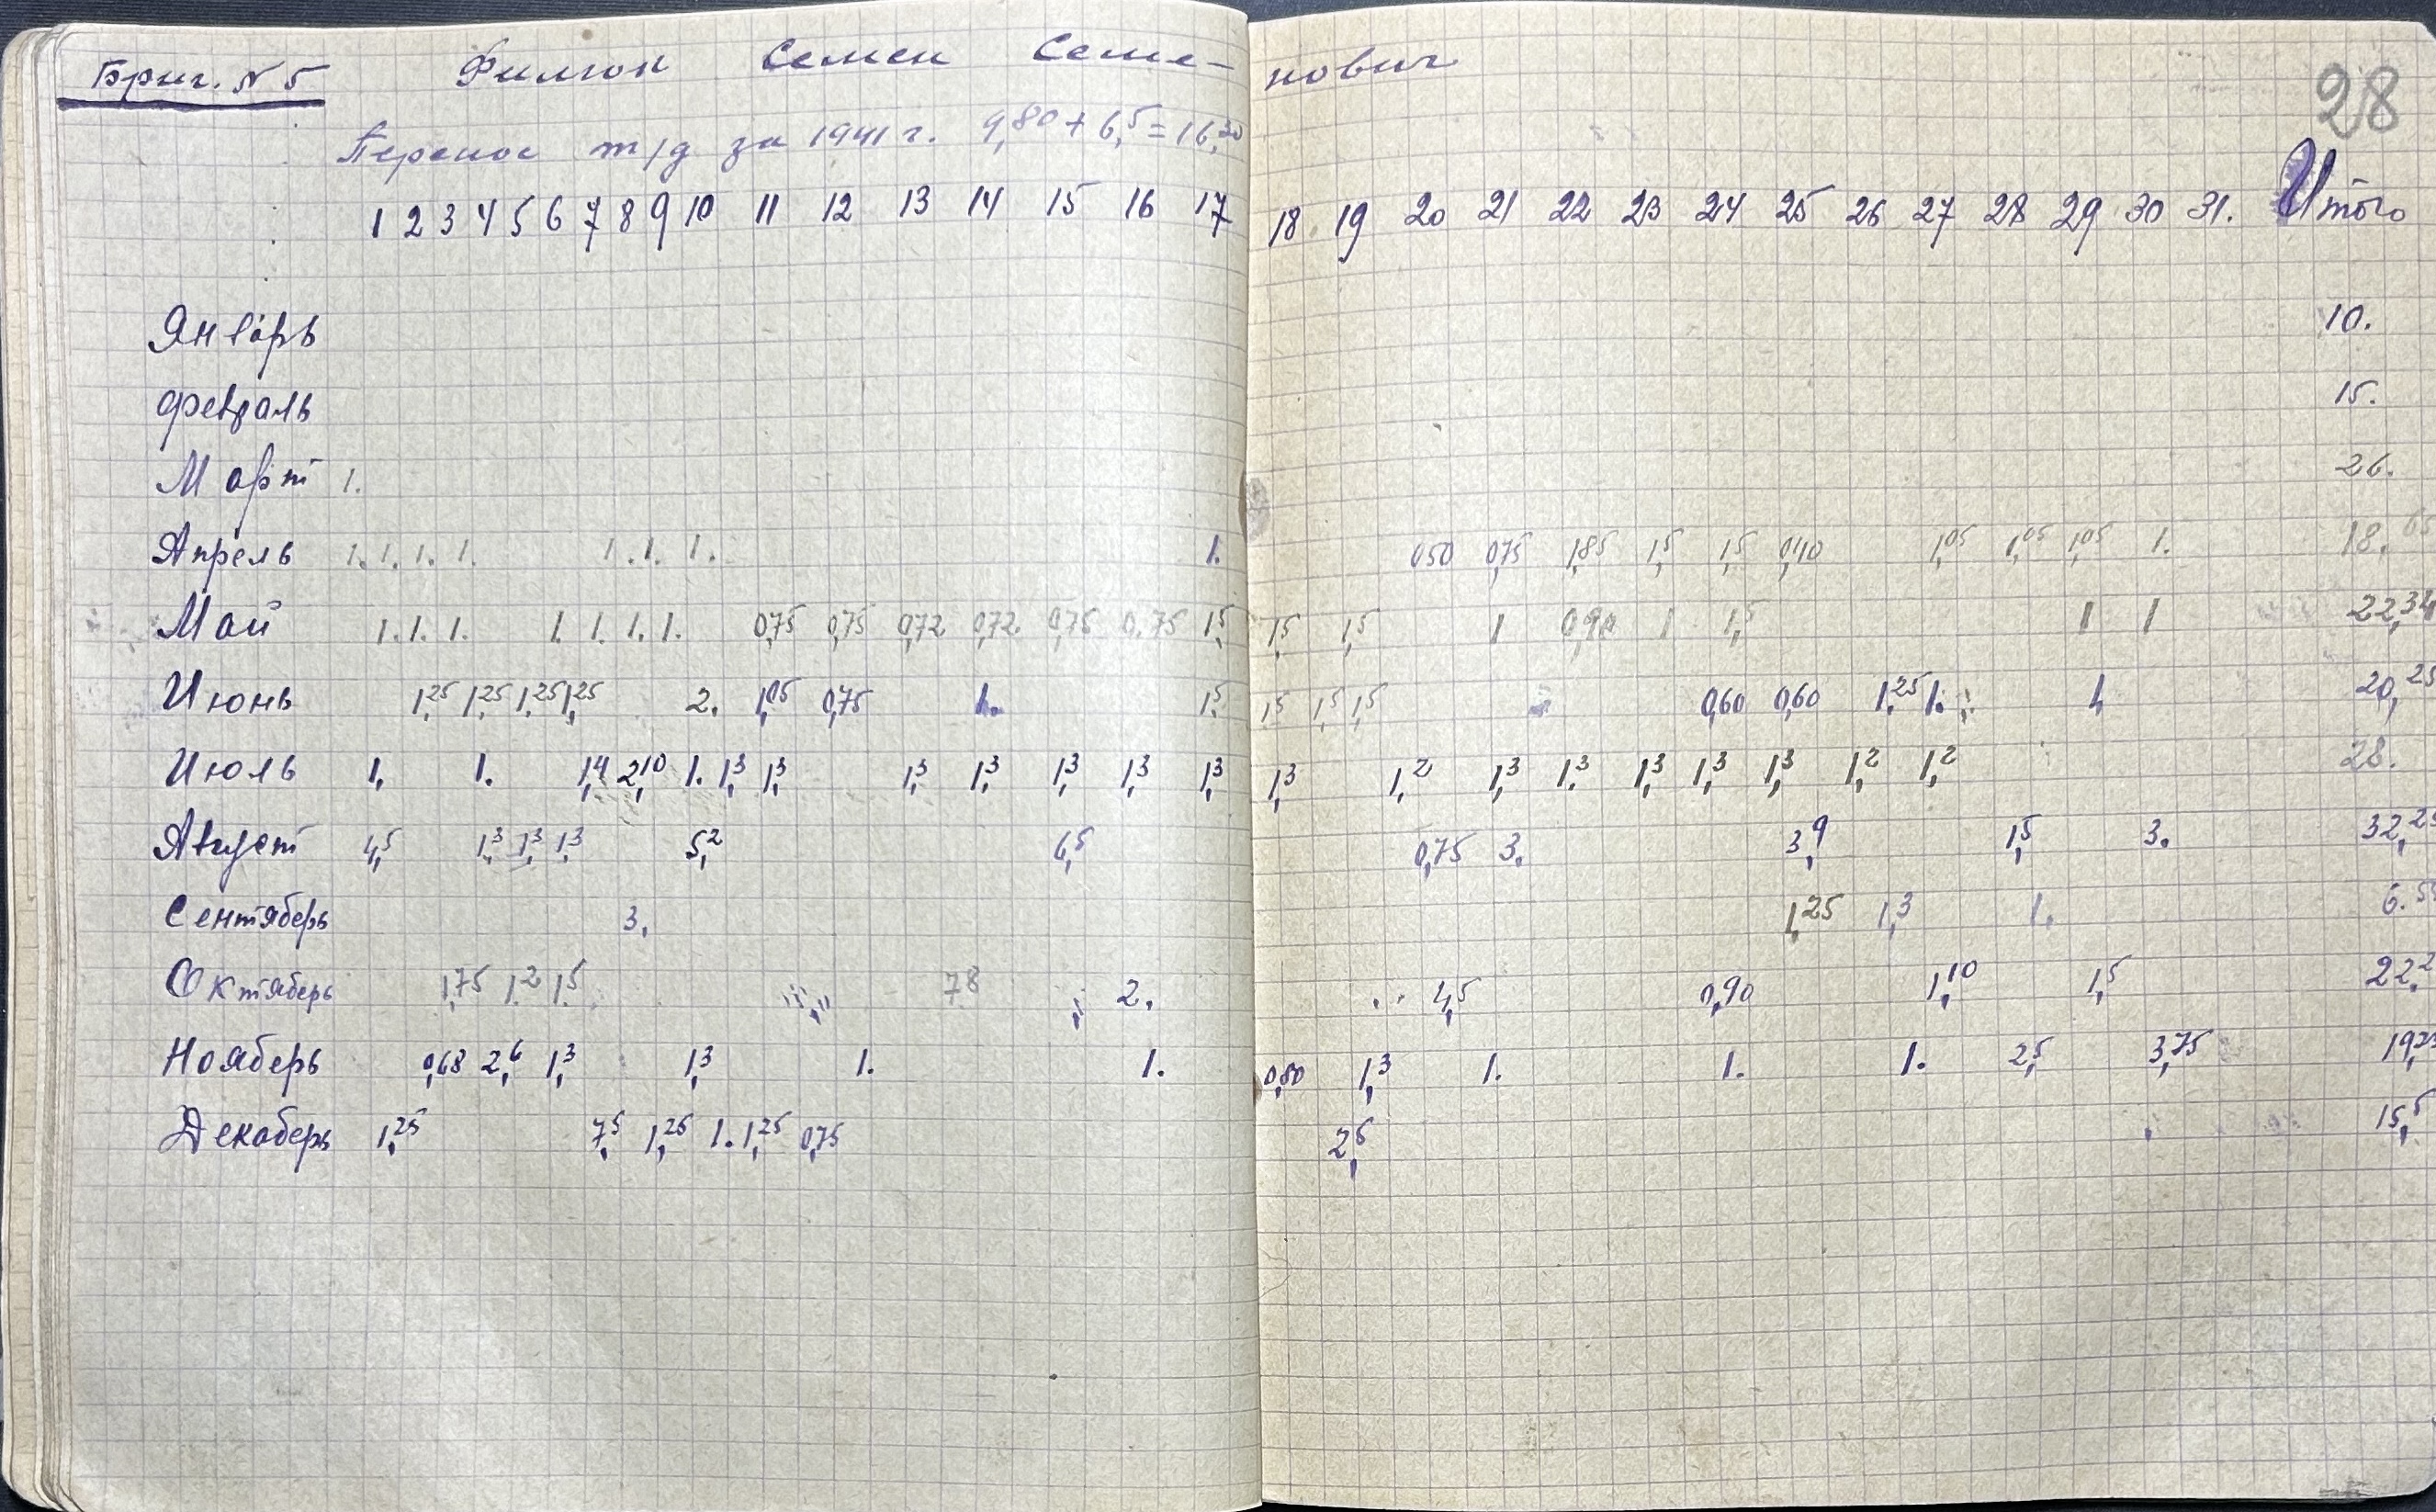 Бриг. N 5 Филион Семен Семе-нович 28
Перенос т/д за 1941 г. 9,80 + 6,5 = 16,30
1 2 3 4 5 6 7 8 9 10 11 12 13 14 15 16 17 18 19 20 21 22 23 24 25 26 27 28 29 30 31. Итого
Январь 10.
Февраль 15.
Март 1. 26.
Апрель 1. 1. 1. 1. 1. 1. 1. 1. 050 0,75 1,85 1,5 1,5 0,40 1,05 1,05 1,05 1. 18,65
Май 1. 1. 1. 1. 1. 1. 1. 0,75 0,75 0,72 0,72 0,75 0.75 1,5 1,5 1,5 1 0,90 1 1,5 1 1 22,34
Июнь 1,25 1,25 1,25 1,25 2. 1,05 0,75 1. 1,5 1,5 1,5 1,5 0,60 0,60 1,25 1. 1, 20,25
Июль 1. 1. 1,4 2,10 1. 1,3 1,3 1,3 1,3 1,3 1,3 1,3 1,3 1,2 1,3 1,3 1,3 1,3 1,3 1,2 1,2 28.
Август 4,5 1,3 1,3 1,3 5,2 6,5 0,75 3. 3,9 1,5 3. 32,25
Сентяберь 3. 1,25 1,3 1. 6.55
Октяберь 1,75 1,2 1,5 7,8 2. 4,5 0,90 1,10 1,5 22,2
Нояберь 0,68 2,6 1,3 1,3 1. 1. 0,80 1,3 1. 1. 1. 2,5 3,75 19,23
Декаберь 1,25 7,5 1,25 1. 1,25 0,75 2,5 15,5